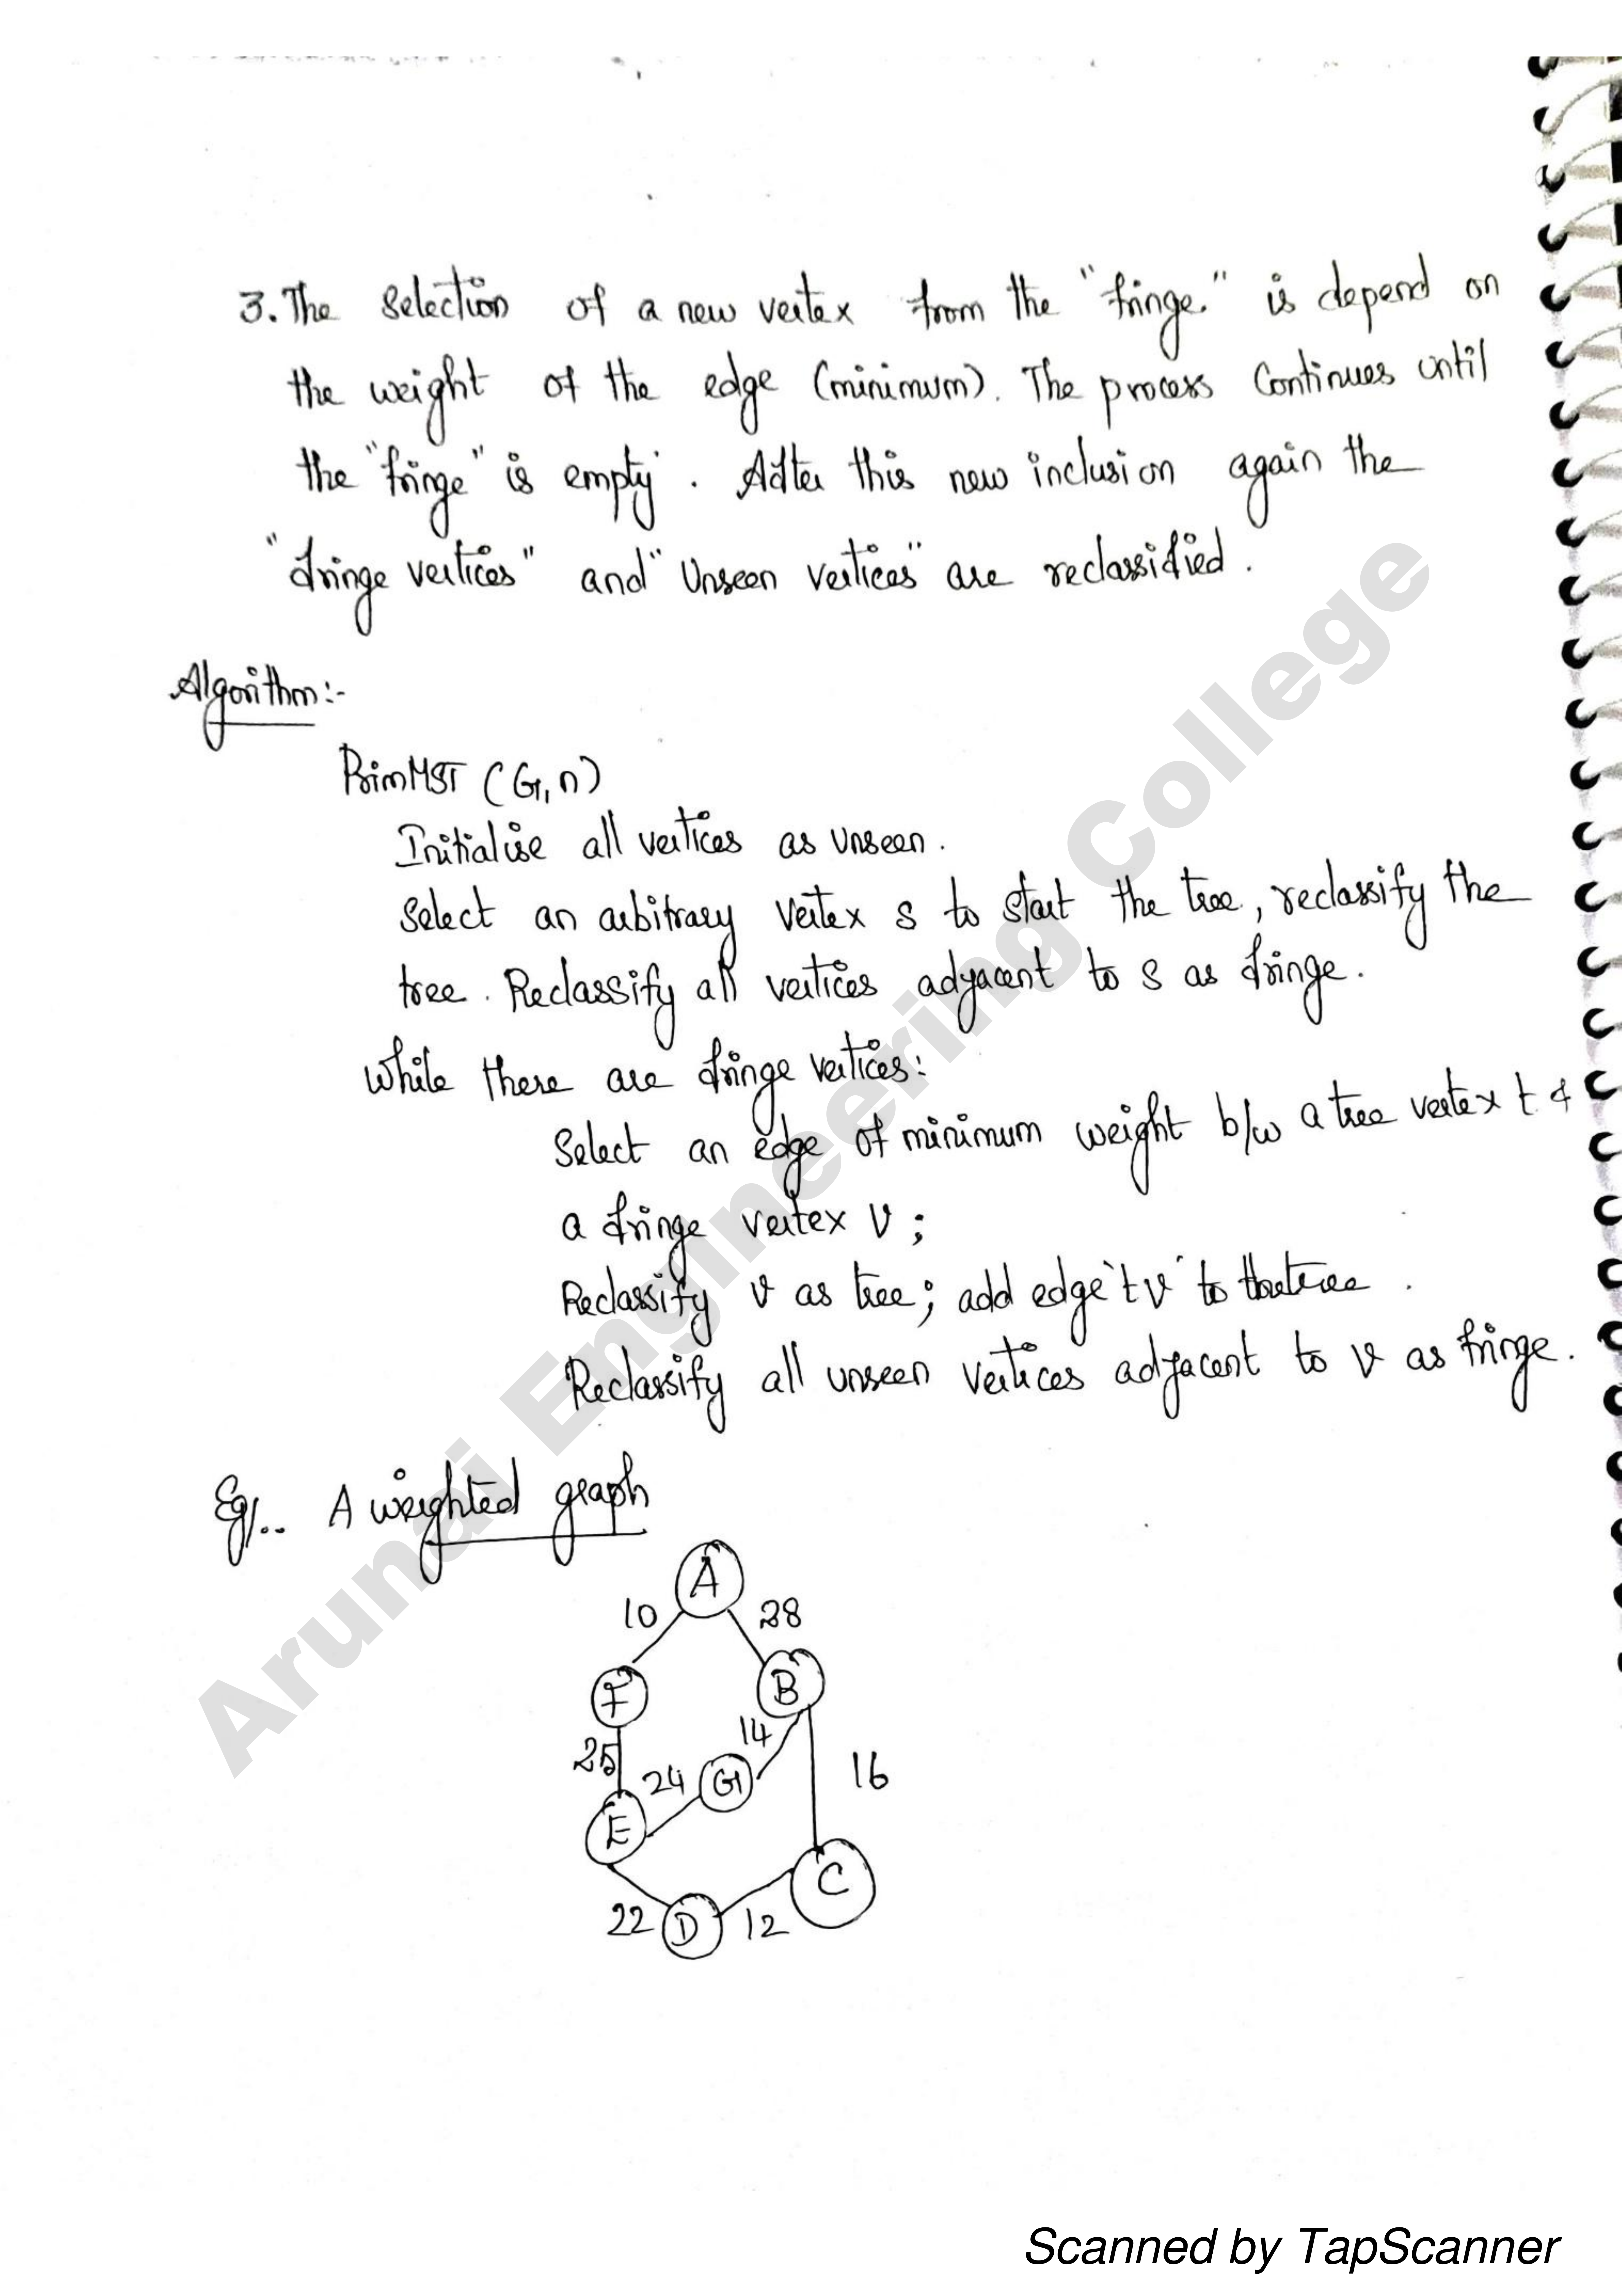 3. The Selection of a new vertex from the "fringe." is depend on
the weight of the edge (minimum). The process Continues until
the "fringe" is empty. After this new inclusion again the
"fringe vertices" and "Unseen vertices" are reclassified.
Algorithm:-
PrimMST (G, n)
Initialise all vertices as unseen.
Select an arbitrary vertex s to start the tree, reclassify the
tree. Reclassify all vertices adjacent to S as fringe.
While there are fringe vertices:
Select an edge of minimum weight b/w a tree vertex t &
a fringe vertex V;
Reclassify v as tree; add edge "tv" to the tree.
Reclassify all unseen vertices adjacent to v as fringe.
Eg:.. A weighted graph
A
10 28
F B
14
25 24 G 16
E
C
22 D 12
Arunai Engineering College
Scanned by TapScanner